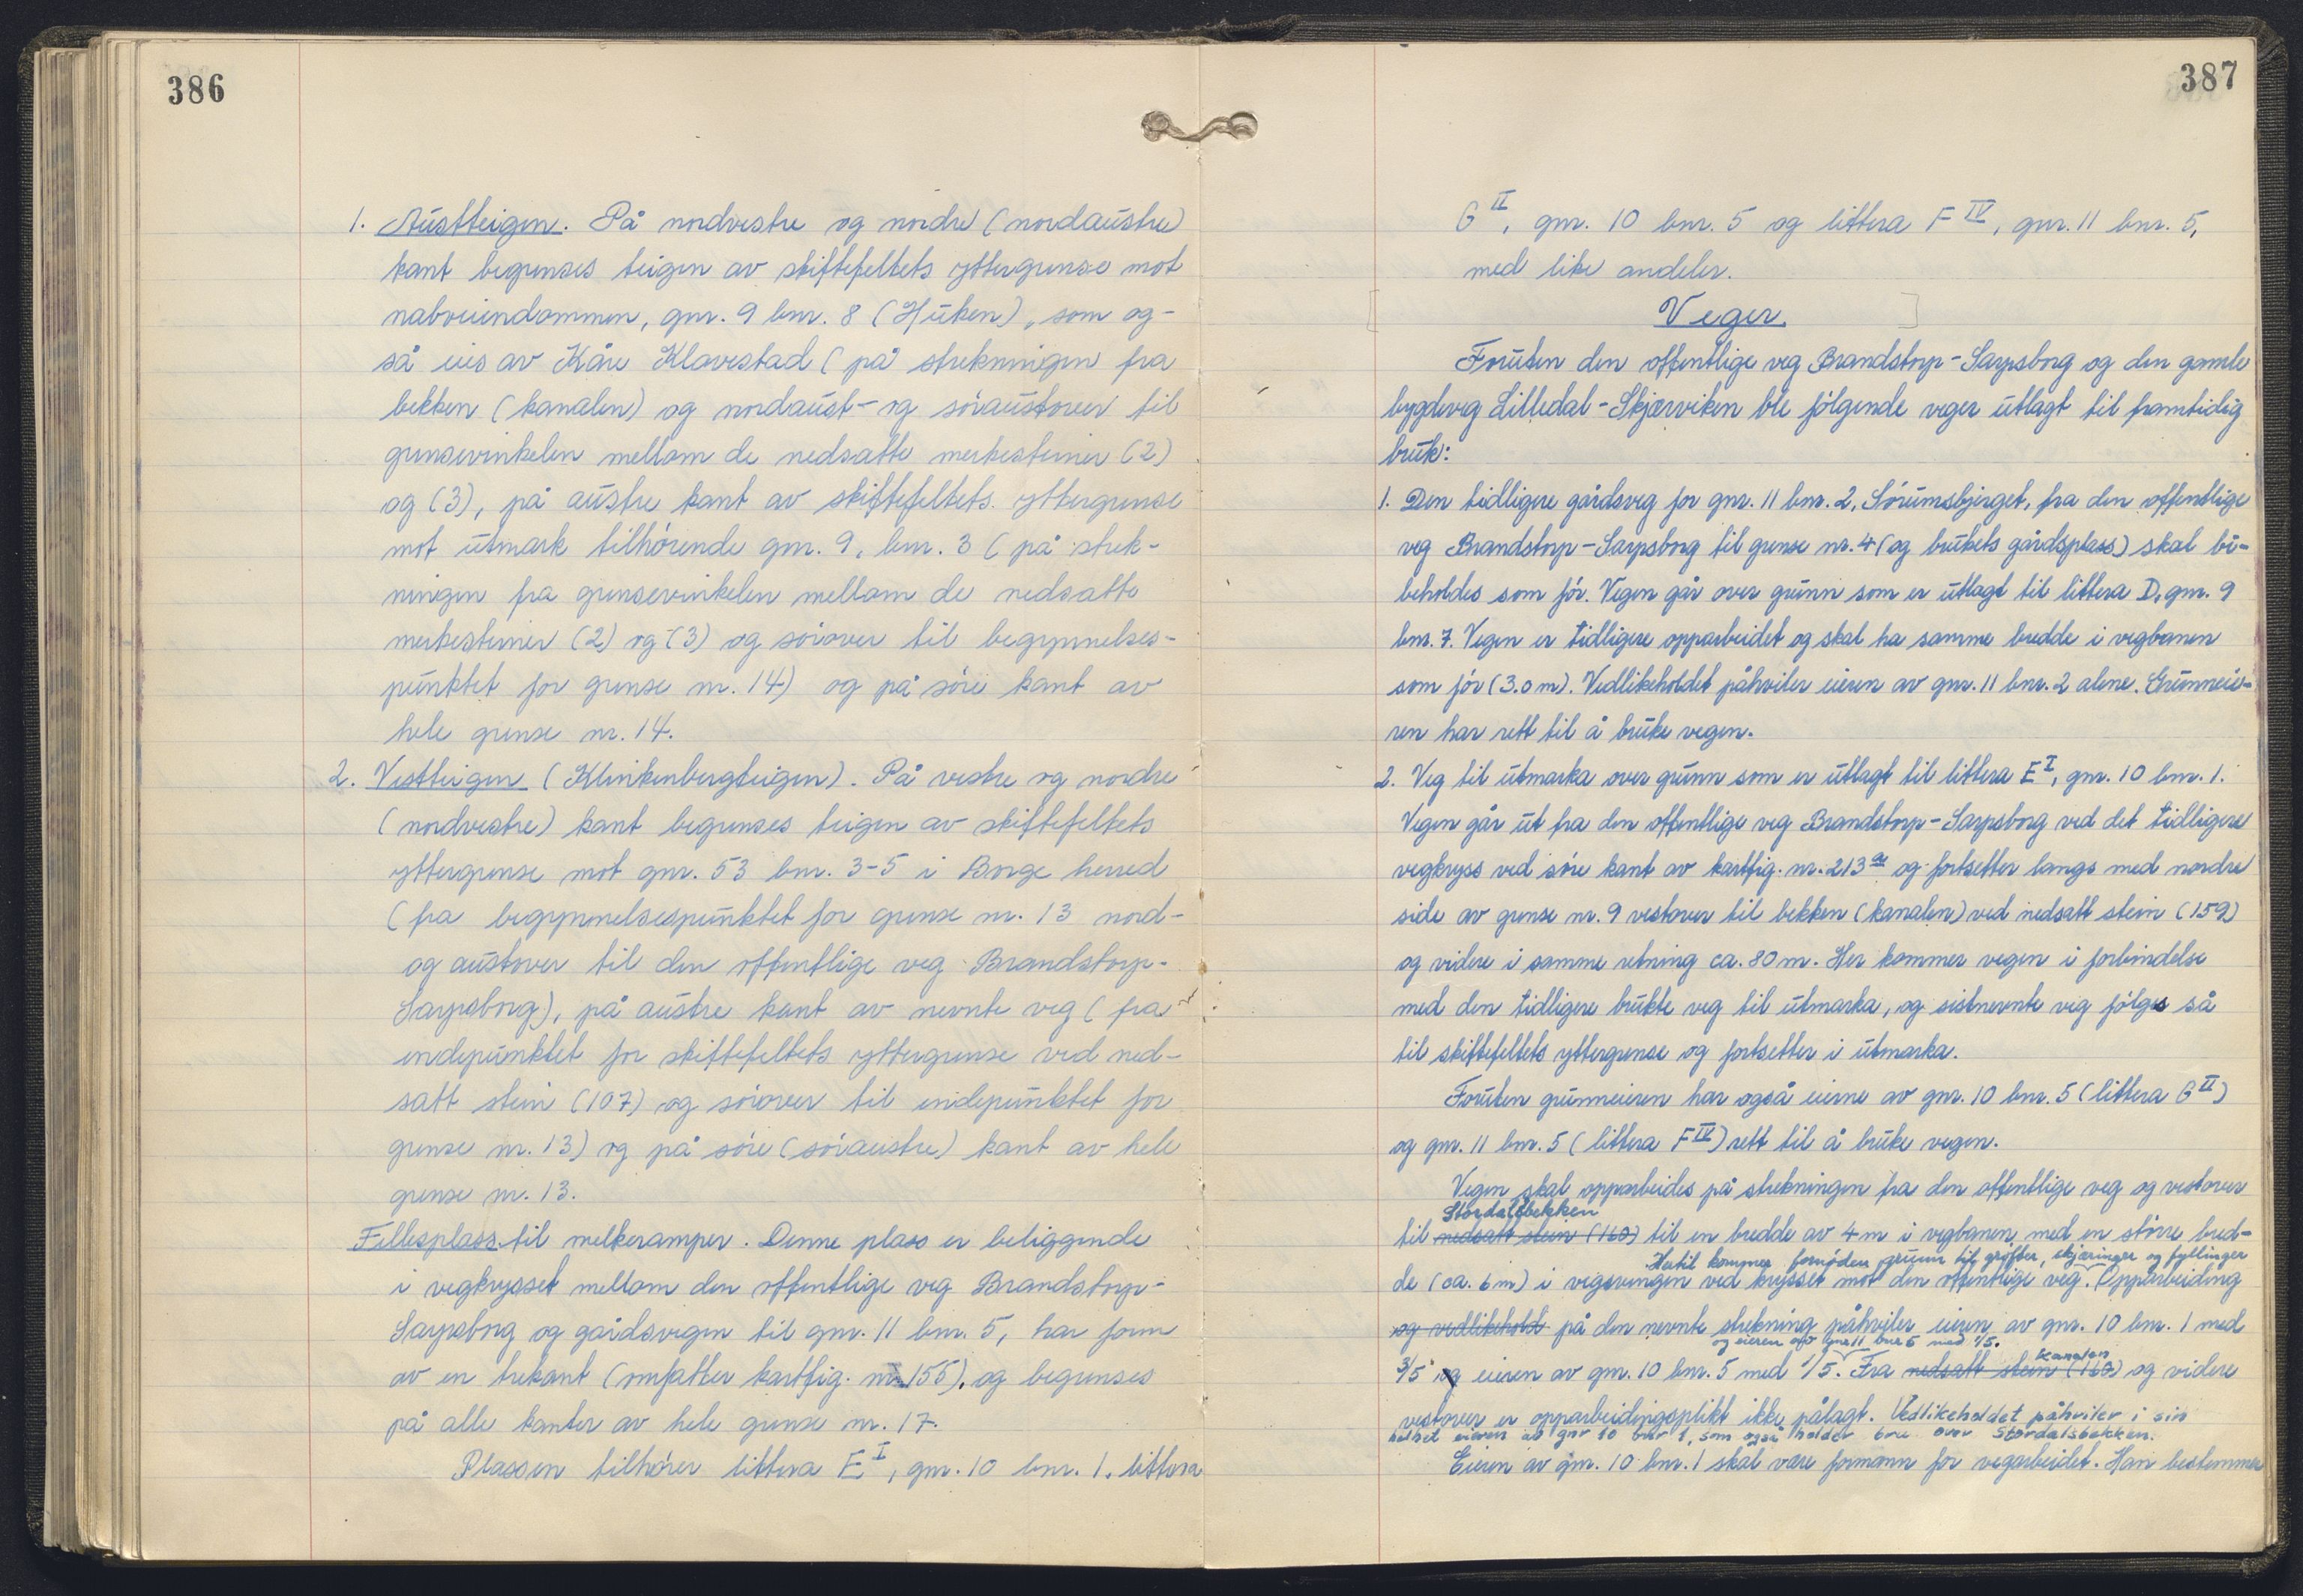 386
1. Austteigen. På nordvestre og nordre (nordaustre)
kant begrenses teigen av skiftefeltets yttergrense mot
naboeiendommen, gnr. 9 bnr. 8 (Huken), som og-
så eies av Kåre Klavestad (på strekningen fra
bekken (kanalen) og nordaust- og söraustover til
grensevinkelen mellom de nedsatte merkesteiner (2)
og (3), på austre kant av skiftefeltets yttergrense
mot utmark tilhörende gnr. 9, bnr. 3 (på strek-
ningen fra grensevinkelen mellom de nedsatte
merkesteiner (2) og (3) og sörover til begynnelses-
punktet for grense nr. 14) og på söre kant av
hele grense nr. 14.
2. Vestteigen (Klinkenbergteigen). På vestre og nordre
(nordvestre) kant begrenses teigen av skiftefeltets
yttergrense mot gnr. 53 bnr. 3-5 i Borge herred
(fra begynnelsespunktet for grense nr. 13 nord-
og austover til den offentlige veg Brandstorp-
Sarpsborg), på austre kant av nevnte veg (fra
endepunktet for skiftefeltets yttergrense ved ned-
satt stein (107) og sörover til endepunktet for
grense nr. 13) og på söre (söraustre) kant av hele
grense nr. 13.
Fellesplass til melkeramper. Denne plass er beliggende
i vegkrysset mellom den offentlige veg Brandstorp-
Sarpsborg og gårdsvegen til gnr. 11 bnr. 5, har form
av en trekant (omfatter kartfig. nr. 155), og begrenses
på alle kanter av hele grense nr. 17.
Plassen tilhörer littera E I, gnr. 10 bnr. 1, littera
387
G II, gnr. 10 bnr. 5 og littera F IV, gnr. 11 bnr. 5,
med like andeler.
Veger.
Foruten den offentlige veg Brandstorp-Sarpsborg og den gamle
bygdeveg Lilledal-Skjærviken ble fölgende veger utlagt til framtidig
bruk:
1. Den tidligere gårdsveg for gnr. 11 bnr. 2, Sörumsbjerget, fra den offentlige
veg Brandstorp-Sarpsborg til grense nr. 4 (og brukets gårdsplass) skal bi-
beholdes som för. Vegen går over grunn som er utlagt til littera D, gnr. 9
bnr. 7. Vegen er tidligere opparbeidet og skal ha samme bredde i vegbanen
som för (3.0 m). Vedlikeholdet påhviler eieren av gnr. 11 bnr. 2 alene. Grunneie-
ren har rett til å bruke vegen.
2. Veg til utmarka over grunn som er utlagt til littera E I, gnr. 10 bnr. 1.
Vegen går ut fra den offentlige veg Brandstorp-Sarpsborg ved det tidligere
vegkryss ved söre kant av kartfig. nr. 213 og fortsetter langs med nordre
side av grense nr. 9 vestover til bekken (kanalen) ved nedsatt stein (159)
og videre i samme retning ca. 80 m. Her kommer vegen i forbindelse
med den tidligere brukte veg til utmarka, og sistnevnte veg fölges så
til skiftefeltets yttergrense og fortsetter i utmarka.
Foruten grunneieren har også eierne av gnr. 10 bnr. 5 (littera G II)
og gnr. 11 bnr. 5 (littera F IV) rett til å bruke vegen.
Vegen skal opparbeides på strekningen fra den offentlige veg og vestover
Stordalsbekken
til nedsatt stein (160) til en bredde av 4 m i vegbanen, med en större bred-
Hertil kommer fornöden grunn til gröfter, skjæringer og fyllinger
de (ca. 6 m) i vegsvingen ved krysset mot den offentlige veg. Opparbeiding
og vedlikehold på den nevnte strekning påhviler eieren av gnr. 10 bnr. 1 med
og eieren av gnr 11 bnr 5 med 1/5.
kanalen
3/5 og eieren av gnr. 10 bnr. 5 med 1/5. Fra nedsatt stein (160) og videre
vestover er opparbeidingsplikt ikke pålagt. Vedlikeholdet påhviler i sin
helhet eieren av gnr 10 bnr 1, som også holder bru over Stordalsbekken.
Eieren av gnr. 10 bnr. 1 skal være formann for vegarbeidet. Han bestemmer